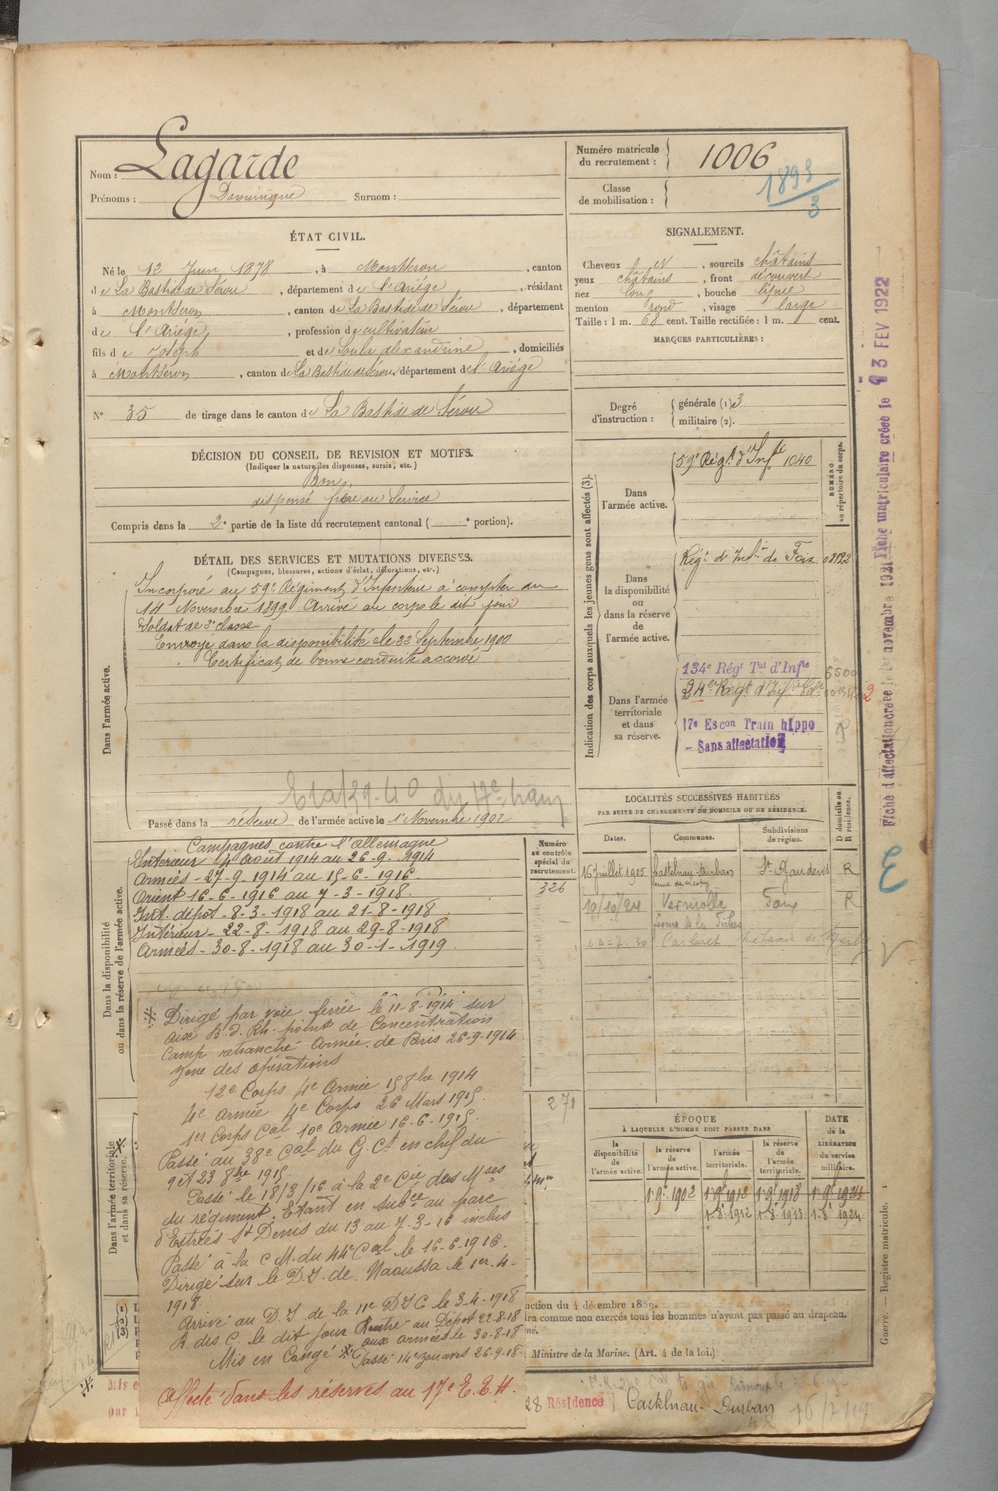 Nom : Lagarde
Prénoms : Dominique Surnom :
Numéro matricule du recrutement : 1006
Classe de mobilisation : 1893/3
ÉTAT CIVIL.
Né le 12 Juin 1878, à Montseron, canton
de La Bastide de Sérou, département de l'Ariége, résidant
à Montseron, canton de La Bastide de Sérou, département
de l'Ariege, profession de cultivateur
fils de Joseph et de Soula Alexandrine, domiciliés
à Montseron, canton de La Bastide de Sérou, département de l'Ariége
N° 35 de tirage dans le canton de La Bastide de Sérou
SIGNALEMENT.
Cheveux , sourcils châtains
yeux châtains, front découvert
nez long, bouche
menton rond, visage large
Taille : 1 m. 68 cent. Taille rectifiée : 1 m. cent.
MARQUES PARTICULIÈRES :
Degré d'instruction : générale (1) 3
militaire (2).
DÉCISION DU CONSEIL DE REVISION ET MOTIFS.
(Indiquer la nature des dispenses, sursis, etc.)
Bon,
dispensé frère au Service
Compris dans la 2e partie de la liste du recrutement cantonal ( e portion).
DÉTAIL DES SERVICES ET MUTATIONS DIVERSES.
(Campagnes, blessures, actions d'éclat, décorations, etc.)
Dans l'armée active.
Incorporé au 59e Régiment d'Infanterie à compter du
14 Novembre 1899 Arrivé au corps le dit jour
Soldat de 2e classe
Envoyé dans la disponibilité le 22 Septembre 1900
Certificat de bonne conduite accordé
Passé dans la réserve de l'armée active le 1er Novembre 1902
Indication des corps auxquels les jeunes gens sont affectés (3).
NUMÉRO au répertoire du corps.
Dans l'armée active.
59e Régt d'Infie 1040
Dans la disponibilité ou dans la réserve de l'armée active.
Régt d'Infie de Foix
Dans l'armée territoriale et dans sa réserve.
134e Régt Tal d'Infie
17e Escon Train hippo
- Sans affectation
Fiche matriculaire créée le 3 FEV 1922
Fiche d'affectation créée le novembre 1921
Dans la disponibilité ou dans la réserve de l'armée active.
Campagnes contre l'Allemagne
Intérieur 4 Aout 1914 au 26-9-1914
Armées - 27-9-1914 au 15-6-1916
Orient 16-6-1916 au 7-3-1918
Int. dépot - 8-3-1918 au 21-8-1918
Intérieur - 22-8-1918 au 29-8-1918
Armées - 30-8-1918 au 30-1-1919
Numéro au contrôle spécial du recrutement.
326
270
LOCALITÉS SUCCESSIVES HABITÉES
PAR SUITE DE CHANGEMENTS DE DOMICILE OU DE RÉSIDENCE.
Dates. Communes. Subdivisions de région. D domicile ou R résidence.
16 juillet 1905 Castelnau-Durban St Gaudens R
10/10/24 Verniolle Foix R
Dans l'armée territoriale et dans sa réserve.
Dirigé par voie ferrée le 11-8-1914 sur
aix B. d. Rh. point de Concentration
Camp retranché Armée de Paris 26-9-1914
zone des opérations
12e Corps 4e Armée 15 8bre 1914
4e armée 4e Corps 26 Mars 1915
1er Corps Cal 10e Armée 16-6-1915.
Passé au 38e Cal du G. Ct en chef du
23 8bre 1915.
Passé le 18/3/16 à la 2e Cie des Mses
du régiment. Etant en subce au parc
d'Estrées St Denis du 13 au 7-3-16 inclus
Passé à la C M. du 44e Cal le 16-6-1916.
Dirigé sur le D.I. de Naoussa le 1er-4-
1918
Arrivé au D I de la 11e D I C le 3-4-1918
R. des C. le dit jour Rentré au Dépôt 22-8-18
aux armées le 30-8-18
Mis en Congé Passé 14e zouaves 26-9-18
affecté dans les réserves au 17e E.E.H.
ÉPOQUE
À LAQUELLE L'HOMME DOIT PASSER DANS
la disponibilité de l'armée active. la réserve de l'armée active. l'armée territoriale. la réserve de l'armée territoriale. DATE de la LIBÉRATION du service militaire.
1er 9bre 1902
ction du 4 décembre 1889.
ra comme non exercés tous les hommes n'ayant pas passé au drapeau.
Ministre de la Marine. (Art. 4 de la loi.)
Guerre. — Registre matricule. 1
28 Résidence Castelnau-Durban
16/7/19